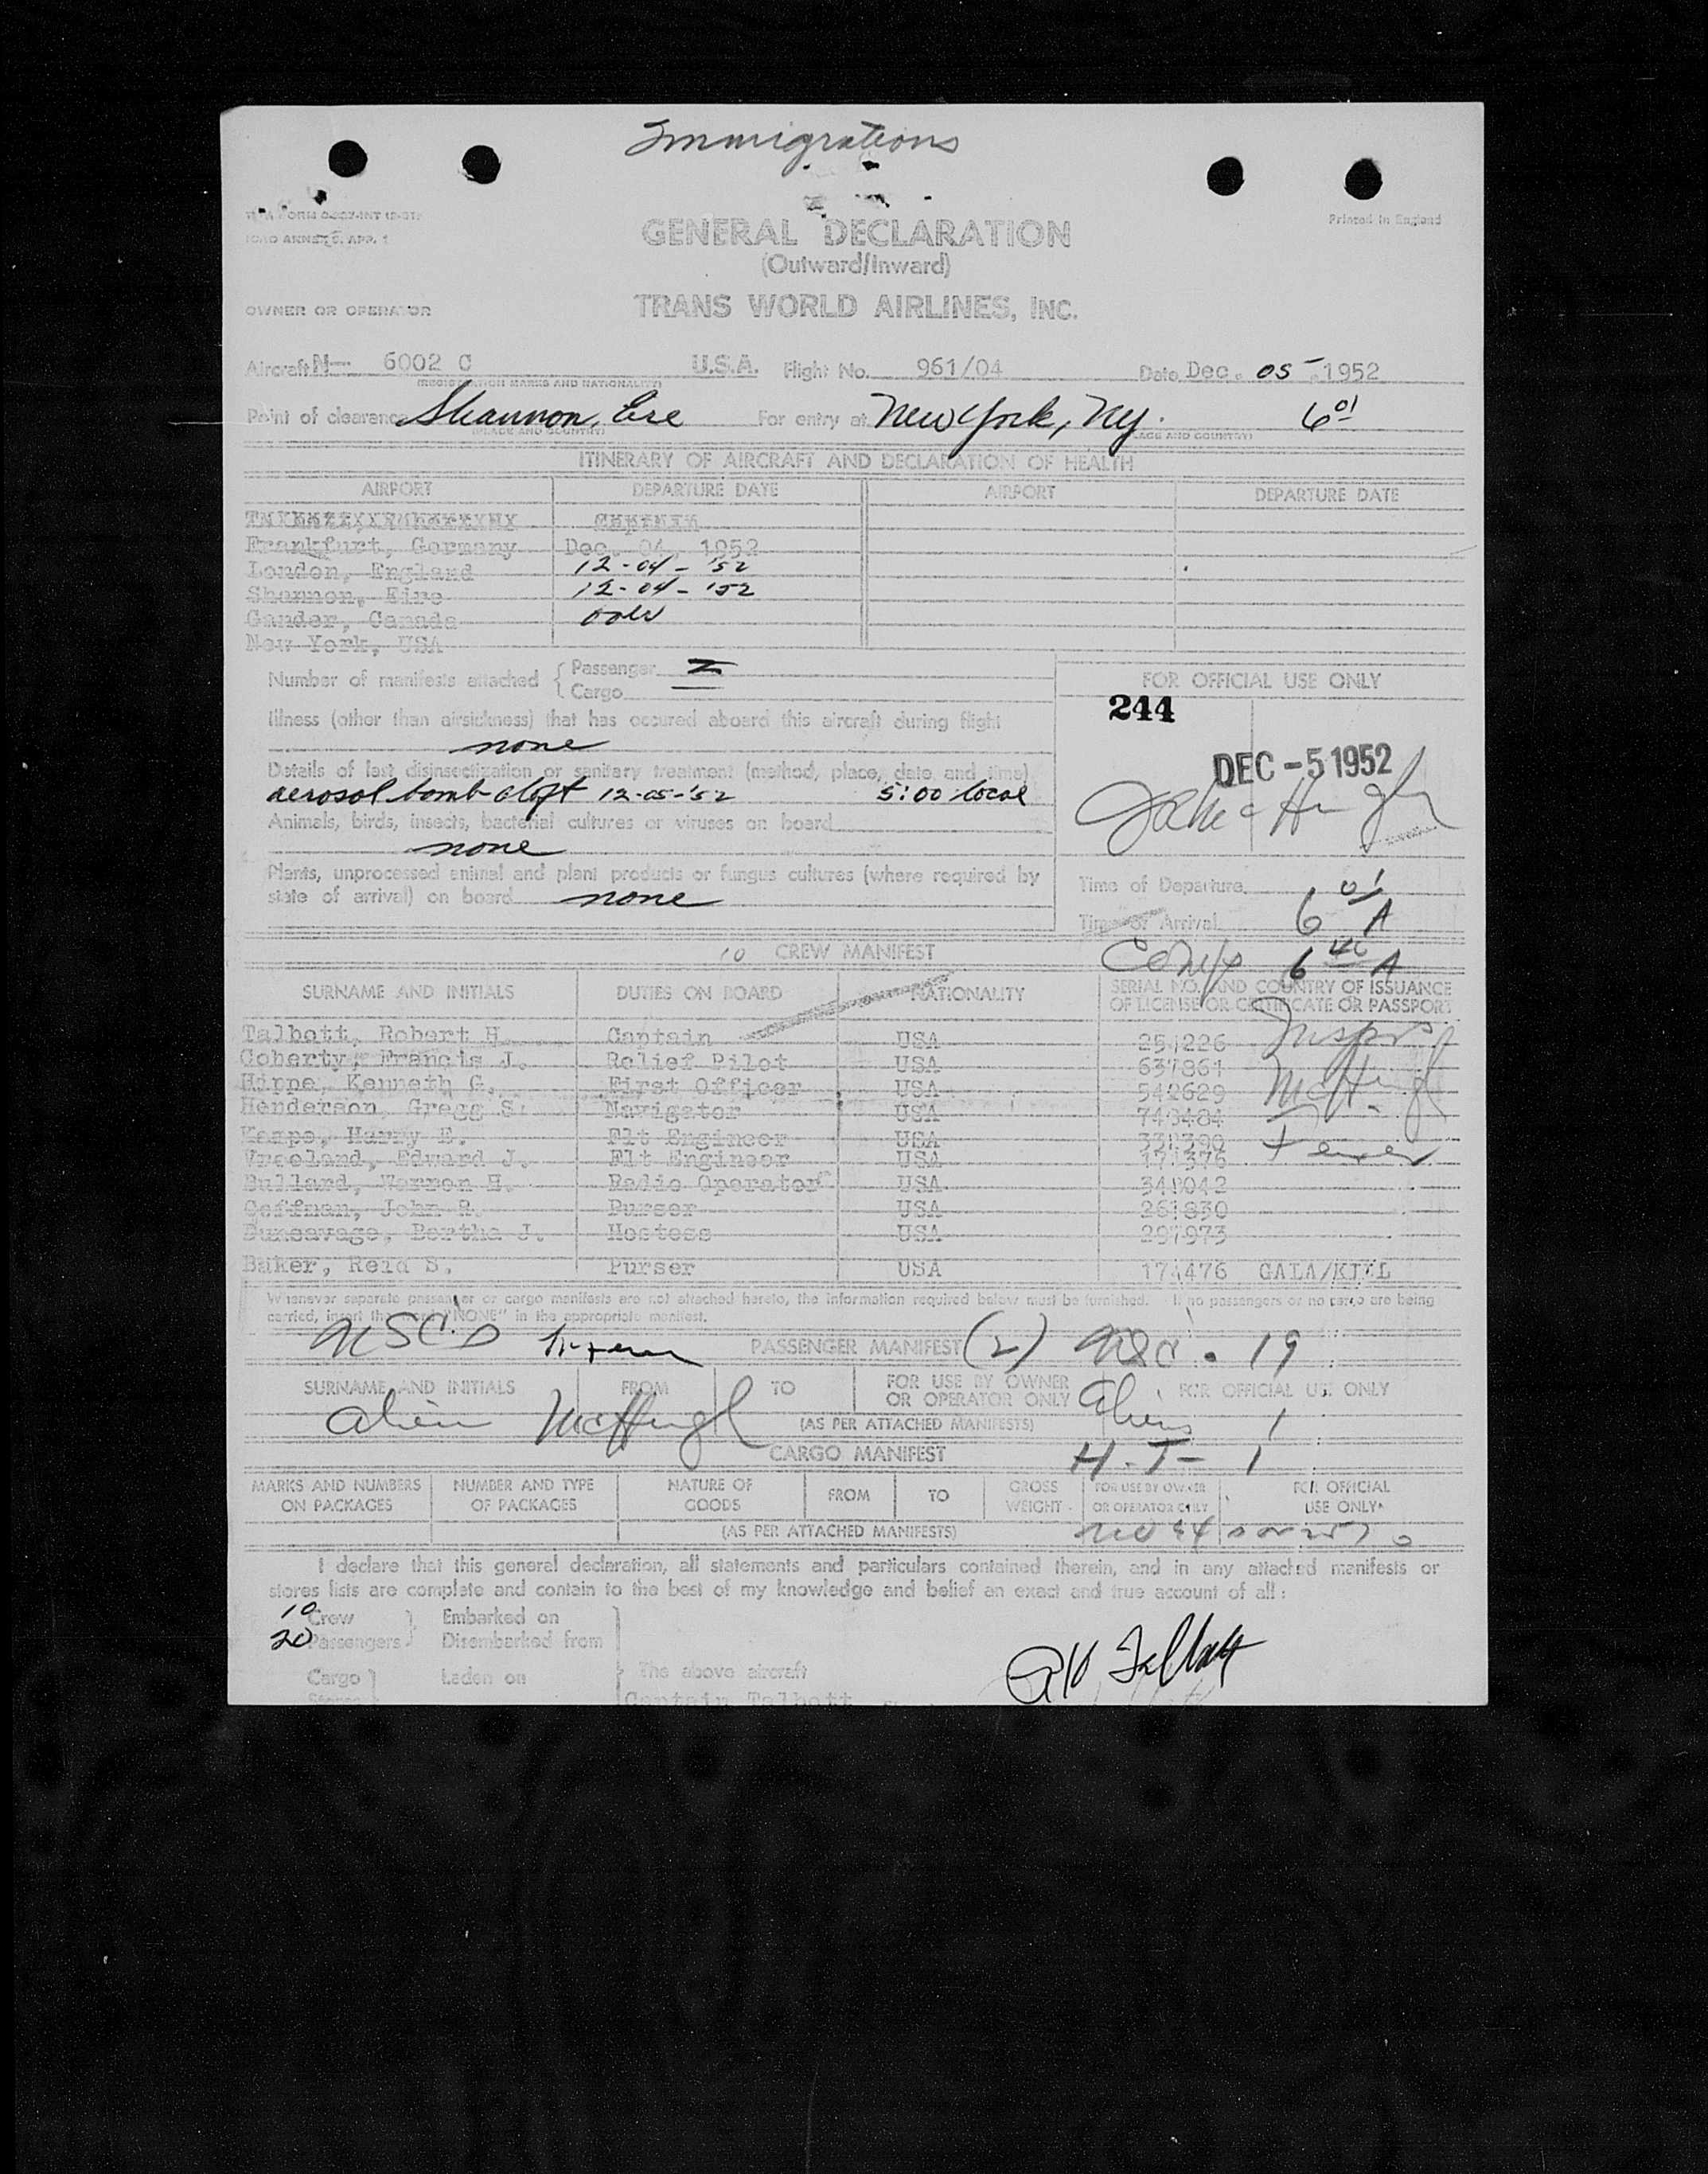 Immigrations
Printed in England
GENERAL DECLARATION
(Outward/Inward)
TRANS WORLD AIRLINES, INC.
OWNER OR OPERATOR
Aircraft N- 6002 C U.S.A. Flight No. 961/04 Date Dec. 05 1952
(REGISTRATION MARKS AND NATIONALITY)
Point of clearance Shannon, Eire For entry at New York, NY. 6 01
(PLACE AND COUNTRY)
ITINERARY OF AIRCRAFT AND DECLARATION OF HEALTH
AIRPORT DEPARTURE DATE AIRPORT DEPARTURE DATE
Frankfurt, Germany Dec. 04, 1952
London, England 12-04-'52
Shannon, Eire 12-04-'52
Gander, Canada
New York, USA
Number of manifests attached { Passenger
Cargo
FOR OFFICIAL USE ONLY
244
Illness (other than airsickness) that has occured aboard this aircraft during flight
none
DEC -5 1952
Details of last disinsectization or sanitary treatment (method, place, date and time)
aerosol bomb aloft 12-05-'52 5:00 local
Animals, birds, insects, bacterial cultures or viruses on board
none
Plants, unprocessed animal and plant products or fungus cultures (where required by
state of arrival) on board none
Time of Departure
Time of Arrival 6 01 A
10 CREW MANIFEST
6 40 A
SURNAME AND INITIALS DUTIES ON BOARD NATIONALITY SERIAL NO. AND COUNTRY OF ISSUANCE
OF LICENSE OR CERTIFICATE OR PASSPORT
Talbott, Robert H. Captain USA 251226
Goherty, Francis J. Relief Pilot USA 637861
Hippe, Kenneth G. First Officer USA 542629
Henderson, Gregg S. Navigator USA 740484
Harry E. Flt Engineer USA
Vreeland, Edward J. Flt Engineer USA 171376
Bullard, Warren H. Radio Operator USA 341042
Coffman, John R. Purser USA 261830
Bertha J. Hostess USA 291973
Baker, Reid S. Purser USA 174476
Whenever separate passenger or cargo manifests are not attached hereto, the information required below must be furnished. If no passengers or no cargo are being
carried, insert the word "NONE" in the appropriate manifest.
PASSENGER MANIFEST (2) 19
SURNAME AND INITIALS FROM TO FOR USE BY OWNER
OR OPERATOR ONLY FOR OFFICIAL USE ONLY
alien McHugh (AS PER ATTACHED MANIFESTS) aliens 1
CARGO MANIFEST H.T- 1
MARKS AND NUMBERS
ON PACKAGES NUMBER AND TYPE
OF PACKAGES NATURE OF
GOODS FROM TO GROSS
WEIGHT FOR USE BY OWNER
OR OPERATOR ONLY FOR OFFICIAL
USE ONLY
(AS PER ATTACHED MANIFESTS)
I declare that this general declaration, all statements and particulars contained therein, and in any attached manifests or
stores lists are complete and contain to the best of my knowledge and belief an exact and true account of all:
10 Crew Embarked on
20 Passengers Disembarked from
Cargo Laden on The above aircraft
Stores Captain Talbott